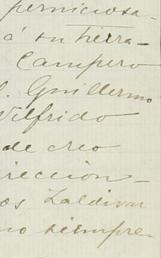 perniciosa-
á su tierra-
Campero
l. Guillermo
Wilfrido
de creo
rección-
os Zaldivar
no siempre-